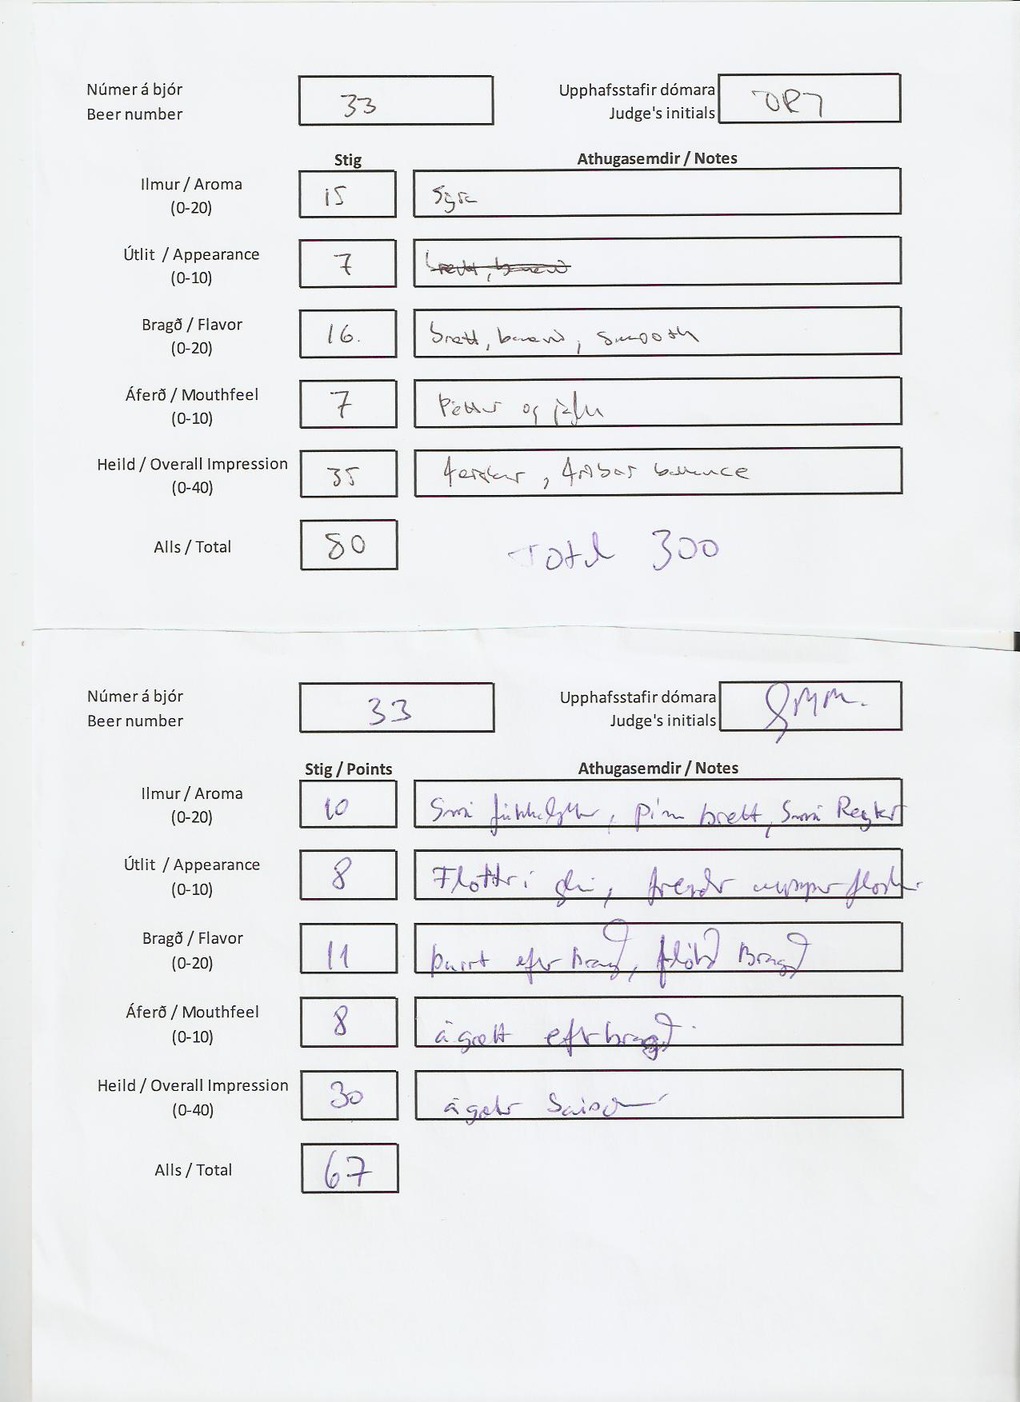 Númer á bjór
Beer number
33
Upphafsstafir dómara
Judge's initials
Stig
Athugasemdir / Notes
Ilmur / Aroma
(0-20)
15
Sýra
Útlit / Appearance
(0-10)
7
Bragð / Flavor
(0-20)
16.
brett, smooth
Áferð / Mouthfeel
(0-10)
7
Þéttur og
Heild / Overall Impression
(0-40)
35
ferskur, balance
Alls / Total
80
Total 300
Númer á bjór
Beer number
33
Upphafsstafir dómara
Judge's initials
Stig / Points
Athugasemdir / Notes
Ilmur / Aroma
(0-20)
10
Smá, brett, Smá
Útlit / Appearance
(0-10)
8
Flottur í
Bragð / Flavor
(0-20)
11
Þurrt eftirbragð, Bragð
Áferð / Mouthfeel
(0-10)
8
ágætt eftirbragð.
Heild / Overall Impression
(0-40)
30
ágætur Saison
Alls / Total
67